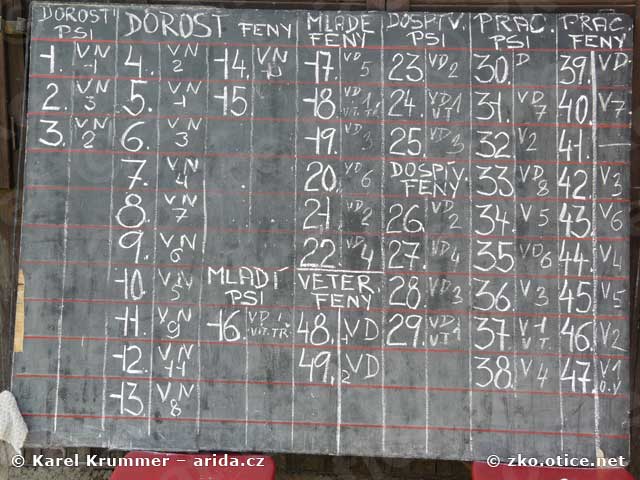 DOROSTI PSI
1. VN 1
2. VN 3
3. VN 2
DOROST FENY
4. VN 2
5. VN 1
6. VN 3
7. VN 4
8. VN 7
9. VN 6
10. VN 5
11. VN 9
12. VN 11
13. VN 8
14. VN
15.
MLADÍ PSI
16. VD 1 VIT. TŘ.
MLADÉ FENY
17. VD 5
18. VD 1, VIT. TŘ.
19. VD 3
20. VD 6
21. VD 2
22. VD 4
VETER. FENY
48. 1 VD
49. 2 VD
DOSPÍV. PSI
23. VD 2
24. VD 1 VT
25. VD 3
DOSPÍV. FENY
26. VD 2
27. VD 4
28. VD 3
29. VD 1 VT
PRAC. PSI
30. D
31. VD 7
32 V 2
33 VD 8
34. V 5
35 VD 6
36. V 3
37. V 1 VT.
38. V 4
PRAC. FENY
39. VD
40. V 7.
41. —
42. V 3
43. V 6
44. V 4
45. V 5
46. V 2
47. V 1 O.V
© Karel Krummer - arida.cz
© zko.otice.net